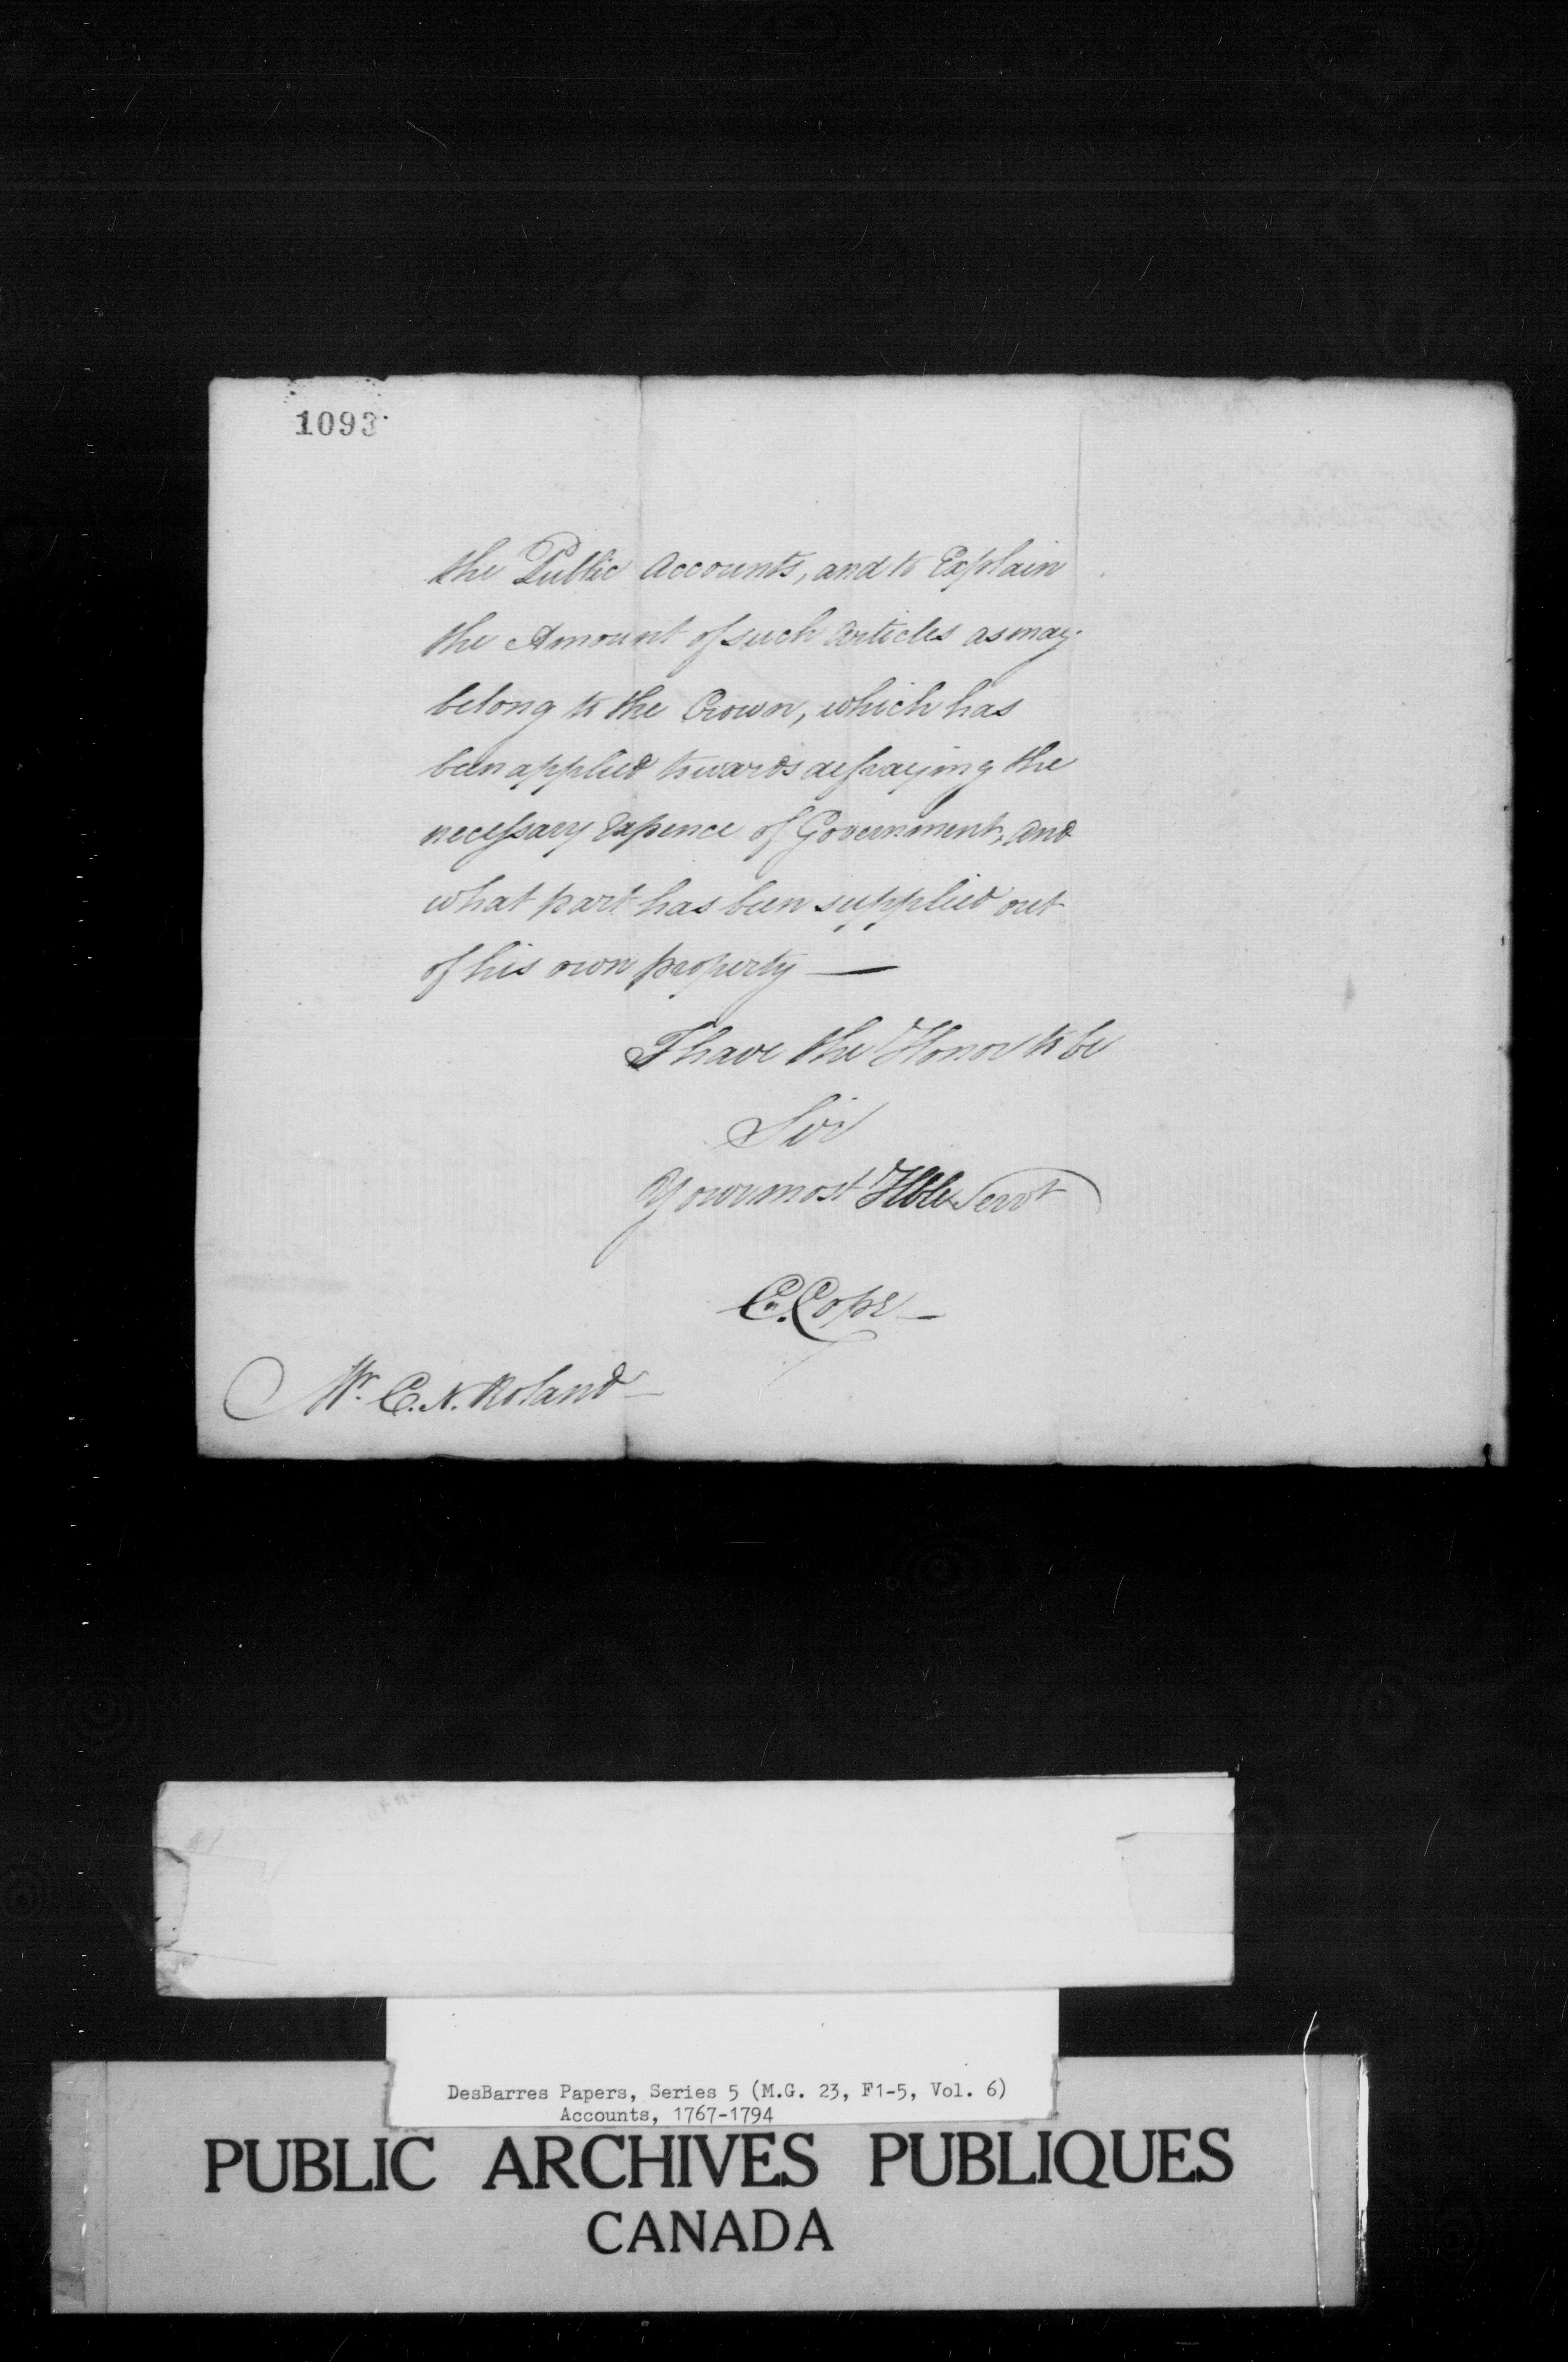 1093
the Public Accounts, and to Explain
the Amount of such Articles as may
belong to the Crown, which has
been applied towards defraying the
necessary Expence of Government, and
what part has been supplied out
of his own property —
I have the Honor to be
Sir
Your most Hble Servt
C. Cope —
Mr. C. N. Roland —
DesBarres Papers, Series 5 (M.G. 23, F1-5, Vol. 6)
Accounts, 1767-1794
PUBLIC ARCHIVES PUBLIQUES
CANADA